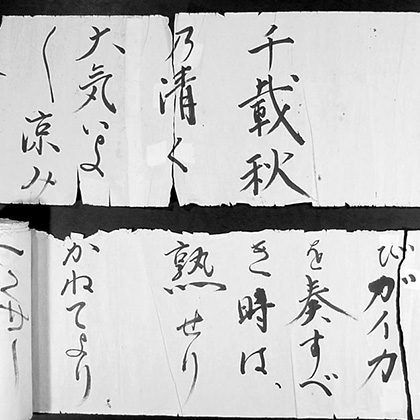 千載秋
乃清く
大気いよ
〱涼み
びガイカ
を奏すべ
き時は、
熟せり
かねてより